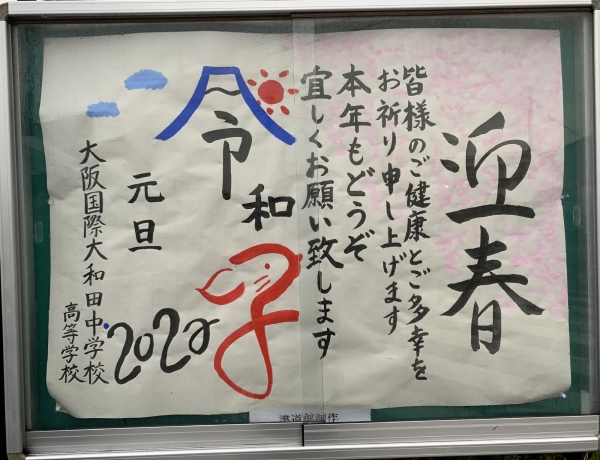 迎春
皆様のご健康とご多幸を
お祈り申し上げます
本年もどうぞ
宜しくお願い致します
令和子
元旦
2020
大阪国際大和田中学校
高等学校
書道部制作